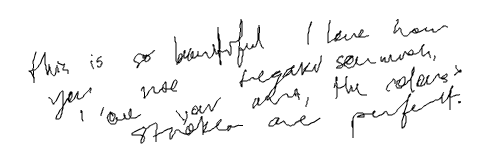 this is so beautiful I love how
you use negative so much,
I love your arms, the colours
strokes are perfect.